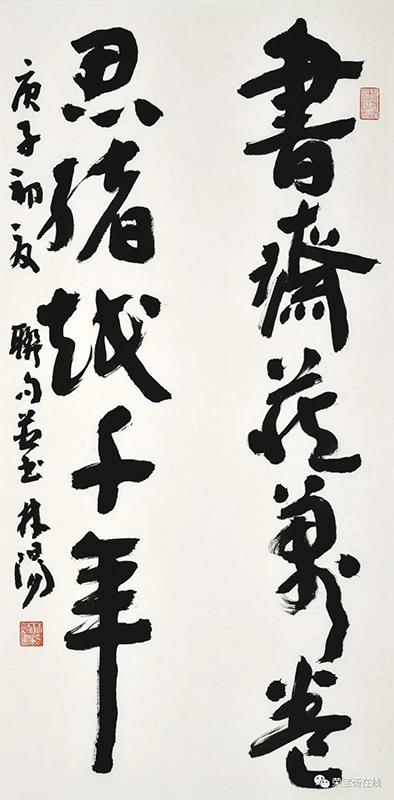 書齋藏萬卷
思緒越千年
庚子初夏 聯句並書 林陽
荣宝斋在线